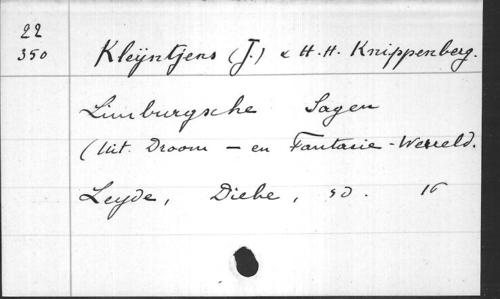 22
350
Kleÿntjens (J.) & H.H. Knippenberg.
Limburgsche Sagen
(Uit. Droom - en Fantasie - Wereld.
Leyde, , sd. 16